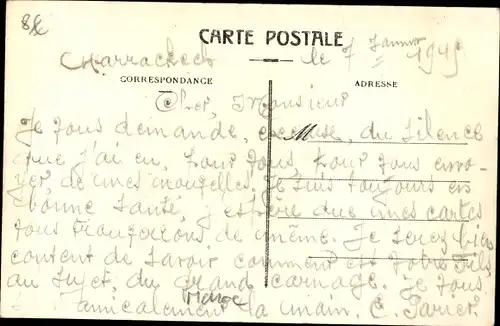 CARTE POSTALE
le 7 Janvier 1915
CORRESPONDANCE
ADRESSE
Cher, Monsieur
Je vous demande, excuse, du silence
que j'ai eu, pour vous, pour vous envo-
yer, de mes nouvelles. Je suis toujours en
bonne santé, j'espère que mes cartes
vous de même. Je serez bien
content de savoir comment est votre fils
au sujet, du grand carnage. Je vous
amicalement la main. E.
Maroc